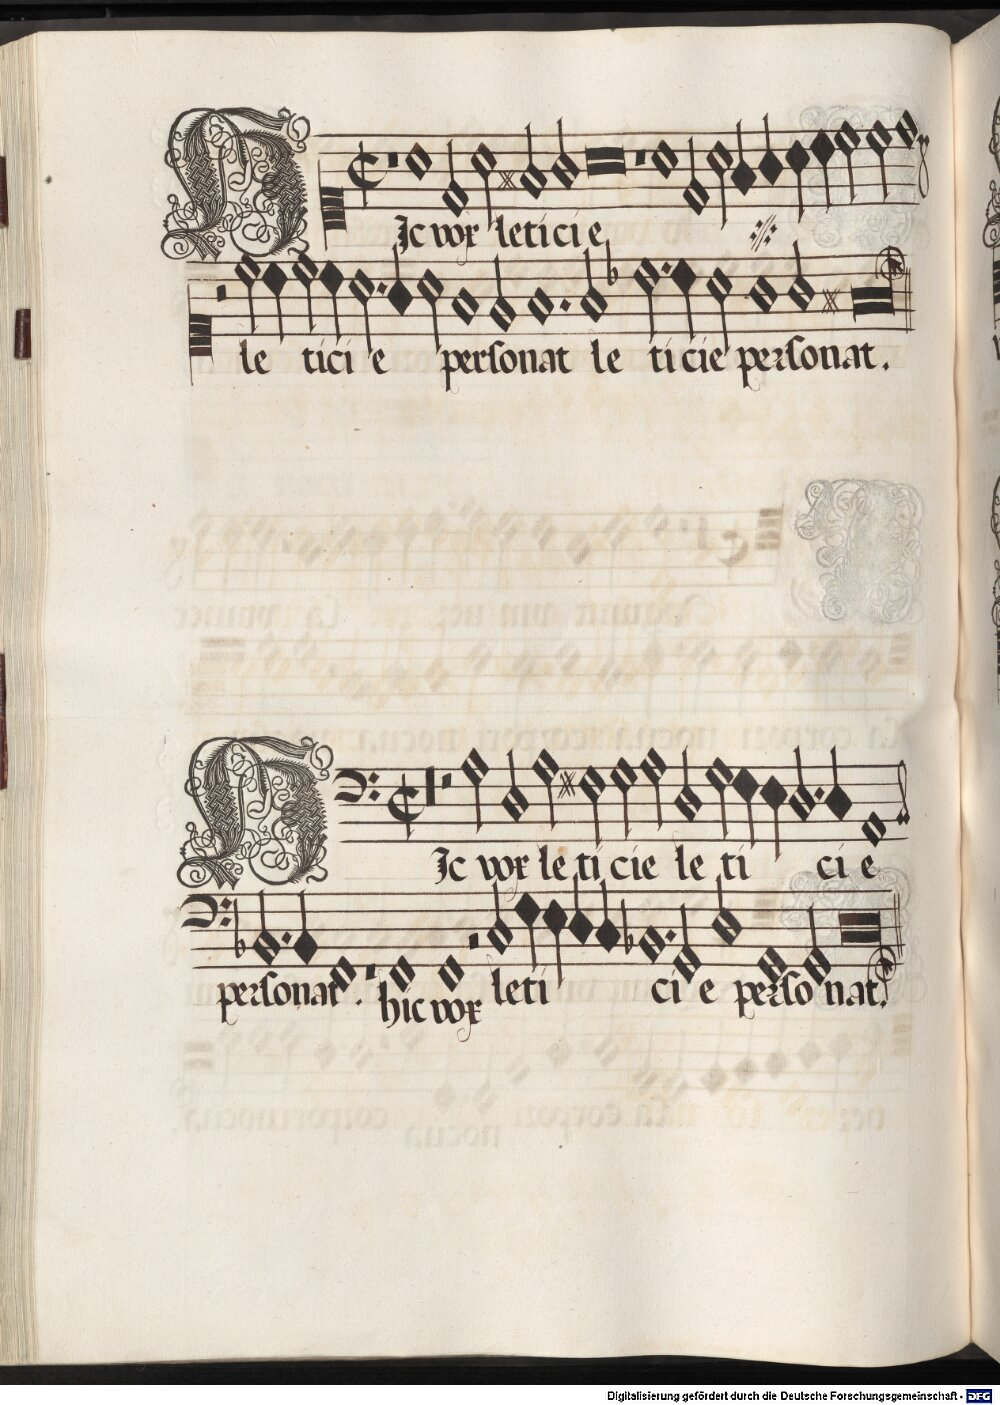 HIc vox leticie
le ticie personat le ticie personat.
HIc vox leticie le ti cie
personat. hic vox leti cie personat.
Digitalisierung gefördert durch die Deutsche Forschungsgemeinschaft - DFG